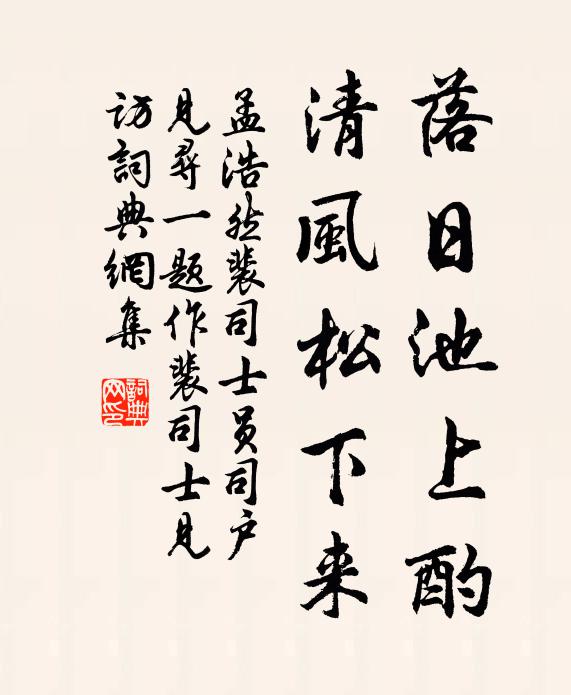 落日池上酌
清風松下来
孟浩然裴司士员司户
見尋一题作裴司士見
訪詞典網集
詞典网印